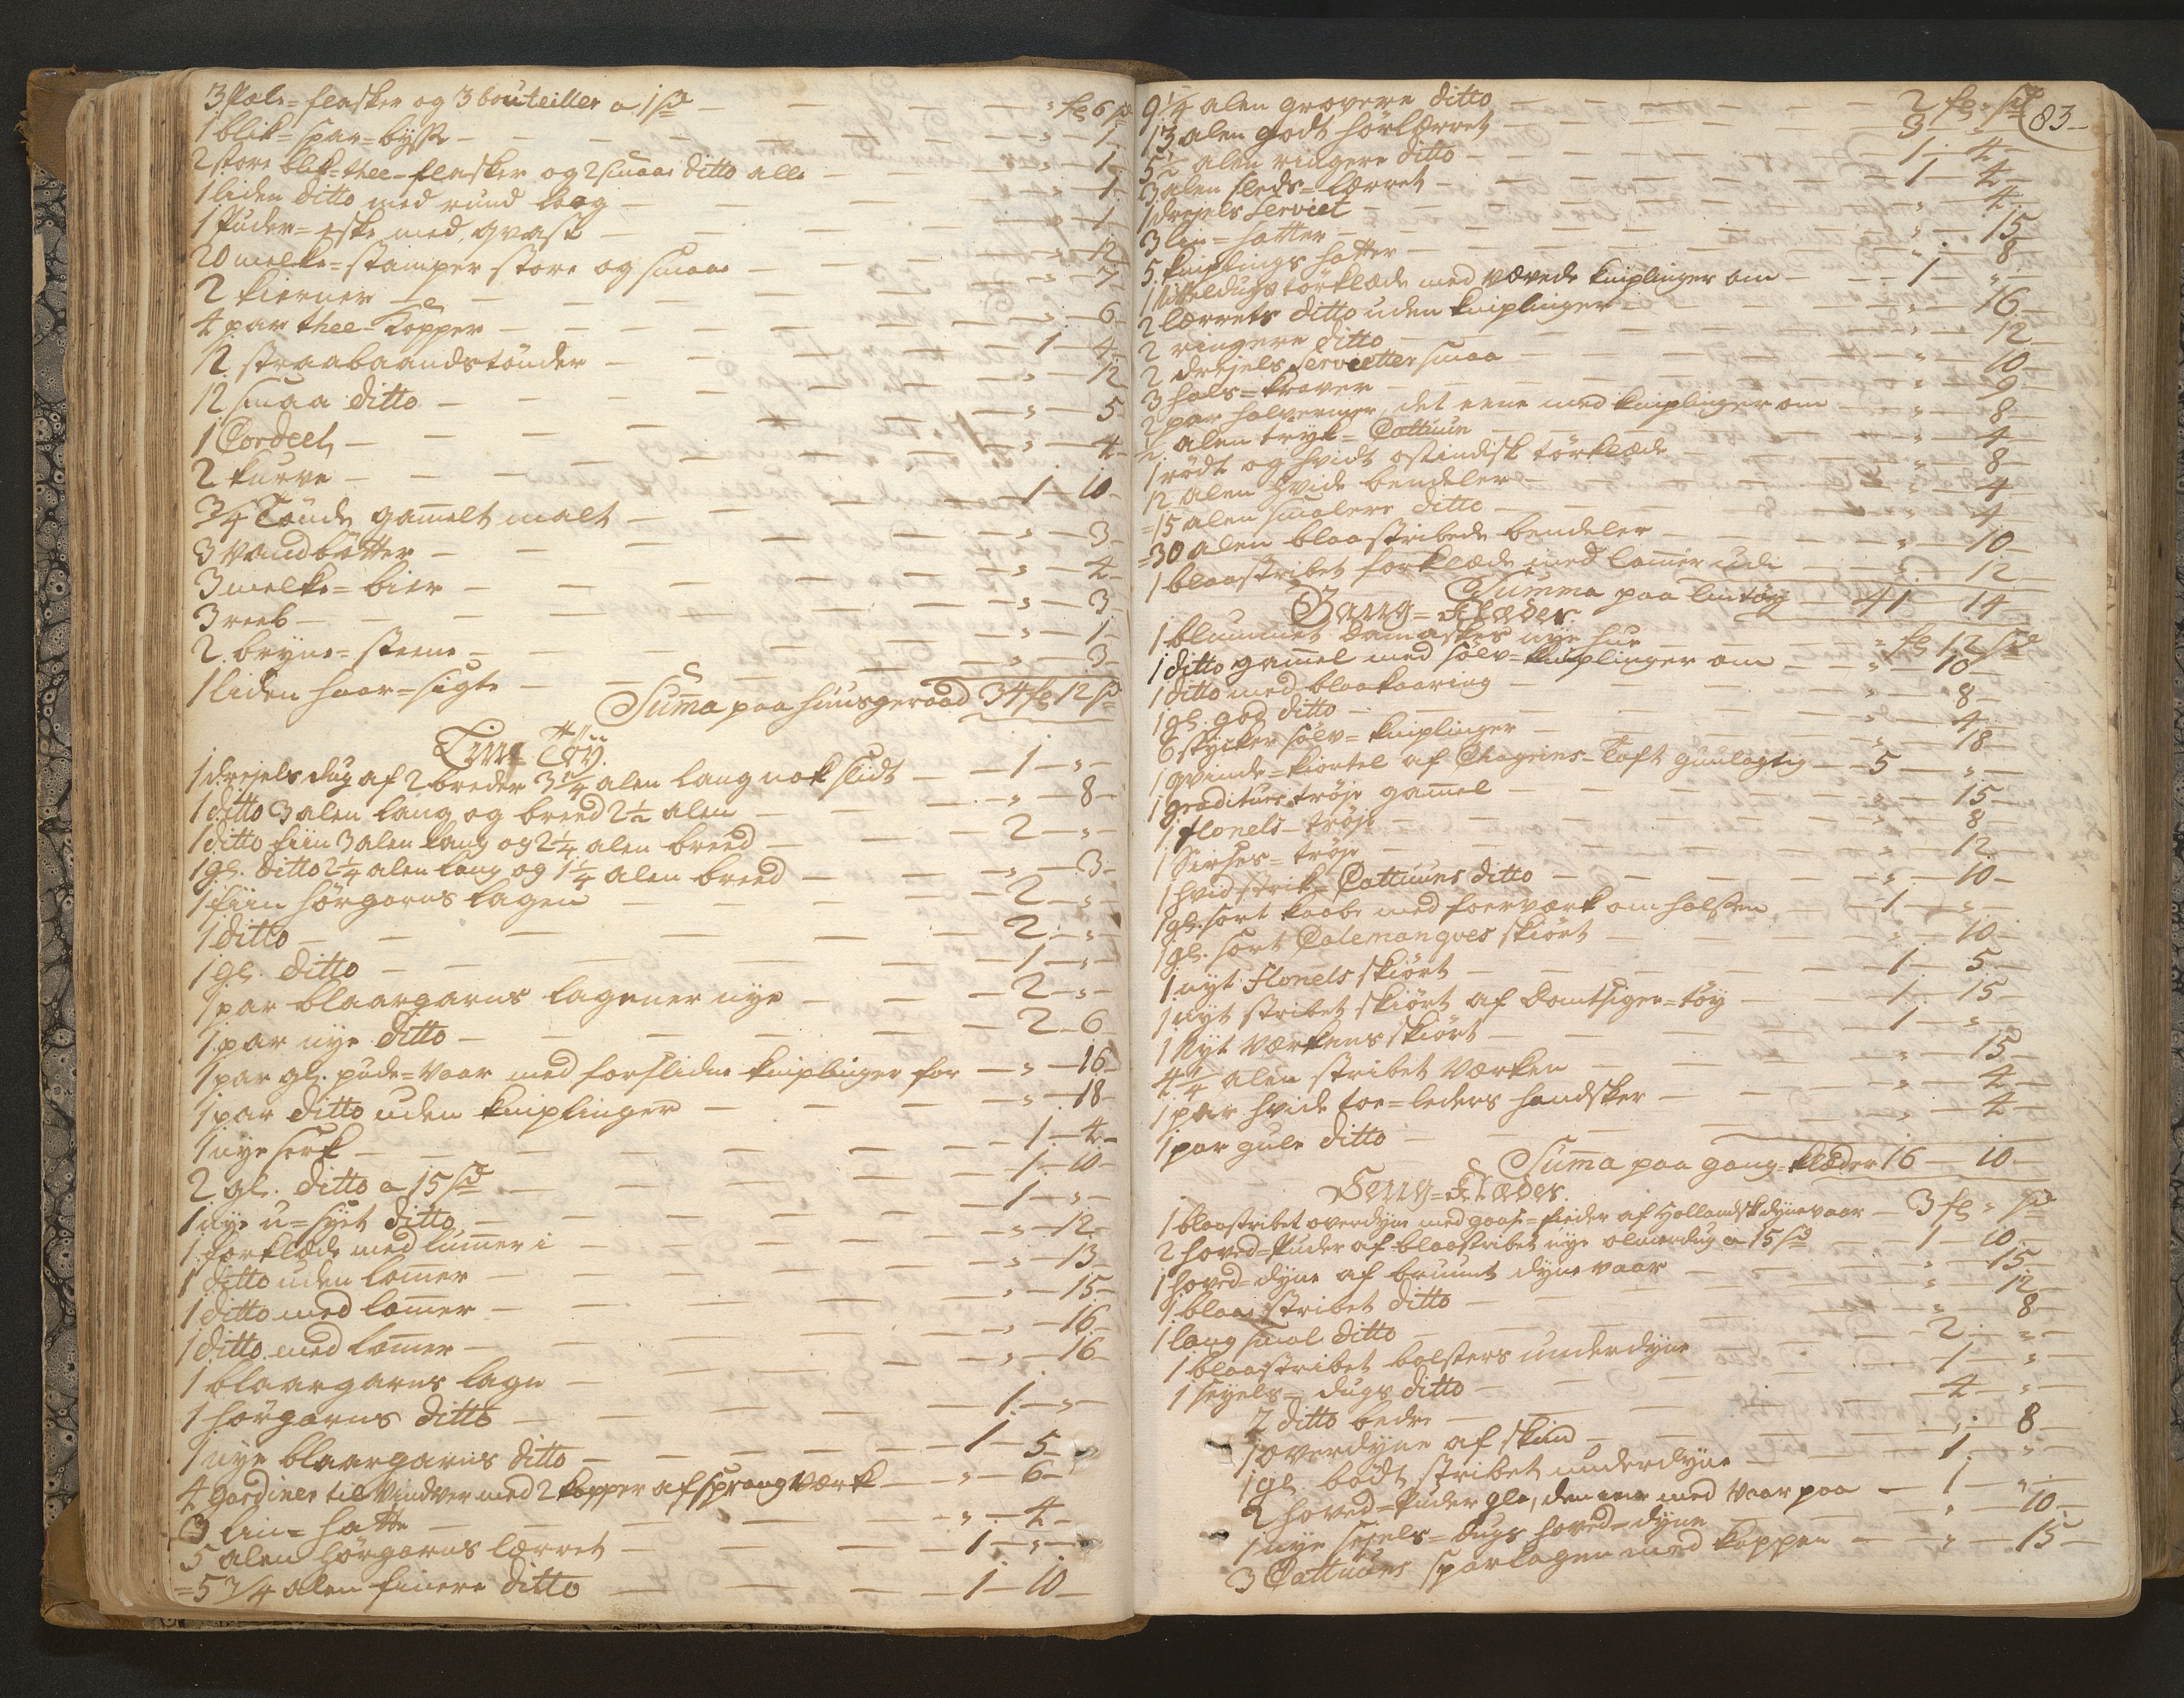 3 Pæle=flasker og 3 bouteiller a 1 sk — — — " fl 6 sk
1 blik=spar=bysse — — — " — 1 —
2 store blik=thee=flasker og 2 smaae ditto alle — — " — 1 —
1 liden ditto med rund laag — — — " — 1 —
1 Puder=eske med qvast — — — " — 1 —
20 melke=stamper store og smaae — — — " — 12 —
2 kierner — — — " — 7 —
4 par thee=Kopper — — — " — 6 —
12 straabaandstönder — — — 1 — 4 —
12 smaa ditto — — — " — 12 —
1 Cordeel — — — " — 5 —
2 kurve — — — " — 4 —
3/4 Tönde gam̄elt malt — — — 1 — 10 —
3 Vandbötter — — — " — 3 —
3 melke=bier — — — " — 4 —
3 reeb — — — " — 3 —
2 bryne=steene — — — " — 1 —
1 liden haar=sigte — — — " — 3 —
Sum̄a paa huusgeraad 34 fl 12 sk
Lin=Töy.
1 drejels dug af 2 breder 3 1/4 alen lang nok slidt — 1 — " —
1 ditto 3 alen lang og breed 2 1/2 alen — — " — 8 —
1 ditto fiin 3 alen lang og 2 1/4 alen breed — — 2 — " —
1 gl. ditto 2 1/4 alen lang og 1 1/4 alen breed — — " — 3 —
1 fiin hörgarns lagen — — — 2 — " —
1 ditto — — — 2 — " —
1 gl. ditto — — — 1 — " —
1 par blaargarns lagener nye — — — 2 — " —
1 par nye ditto — — — 2 — 6 —
1 par gl. pude=vaar med forslidne kniplinger for — " — 16 —
1 par ditto uden kniplinger — — — " — 18 —
1 nye serk — — — 1 — 4 —
2 gl. ditto a 15 sk — — — 1 — 10 —
1 nye u=syet ditto — — — 1 — " —
1 forklæde med lum̄er i — — — " — 12 —
1 ditto uden lom̄er — — — " — 13 —
1 ditto med lom̄er — — — " — 15 —
1 ditto med lom̄er — — — " — 16 —
1 blaargarns lagn — — — " — 16 —
1 hörgarns ditto — — — 1 — " —
1 nye blaargarns ditto — — — 1 — 5 —
4 gardiner til Vindver med 2 kapper af sprangværk — " — 6 —
3 lin=hatte — — — " — 4 —
5 alen hörgarns lærret — — — 1 — " —
=5 3/4 alen finere ditto — — — 1 — 10 —
83
9 1/4 alen grovere ditto — — — 2 fl " sk
13 alen godt hörlærret — — — 3 — " —
5 1/2 alen ringere ditto — — — 1 — 4 —
3 alen lærret — — — 1 — 4 —
1 drejels Serviet — — — " — 4 —
3 lin=hatter — — — " — 15 —
5 kniplings hatter — — — " — 8 —
1 Netteldugs törklæde med vævede kniplinger om — 1 — " —
2 lærrets ditto uden kniplinger — — " — 16 —
2 ringere ditto — — — " — 12 —
2 drejels Servietter smaa — — — " — 10 —
3 hals=kraver — — — " — 9 —
2 par halvermer, det eene med kniplinger om — " — 8 —
1/2 alen tryk=Cattuun — — — " — 4 —
1 rödt og hvidt ostindisk törklæde — — " — 8 —
12 alen hvide bendeler — — — " — 4 —
=15 alen smalere ditto — — — " — 4 —
=30 alen blaastribede bendeler — — — " — 10 —
1 blaastribet forklæde med lom̄er udi — " — 12 —
Summa paa lintöy — 41 — 14 —
Gang=Klæder.
1 blummet Damaskes nye hue — " fl 12 sk
1 ditto gam̄el med sölv=kniplinger om — " — 10 —
1 ditto med blaakaaring — — — " — 8 —
1 gl. god ditto — — — " — 4 —
6 stycker sölv=kniplinger — — — " — 18 —
1 qvinde=kiortel af Chagrins=Taft guulagtig — 5 — " —
1 graditurs tröje gam̄el — — — " — 15 —
1 flonels=tröje — — — " — 8 —
1 Sirses=tröje — — — " — 12 —
1 hvid strik=Cattuuns ditto — — — " — 10 —
1 gl. sort kaabe med foerværk om halsen — 1 — " —
1 gl. sort Calemanques skiört — — — " — 10 —
1 nyt flonels skiört — — — 1 — 5 —
1 nyt stribet skiört af Domtsiger=töy — — 1 — 15 —
1 Nyt Værkens skiört — — — 1 — " —
4 1/4 alen stribet værken — — — " — 15 —
1 par hvide toe=leders handsker — — " — 4 —
1 par gule ditto — — — " — 4 —
Sum̄a paa gang=klæder 16 — 10 —
Seng=Klæder.
1 blaastribet overdyne med gaase=fieder af Hollandsk dynevaar — 3 fl " sk
2 hoved=Puder af blaastribet nye olmerdug a 15 sk — 1 — 10 —
1 hoved=dyne af bruunt dynevaar — — " — 15 —
1 blaa stribet ditto — — — " — 12 —
1 lang smal ditto — — — " — 8 —
1 blaastribet bolsters underdyne — — 2 — " —
1 sejels=dugs ditto — — — 1 — " —
2 ditto bedre — — — 4 — " —
1 overdyne af skind — — — " — 8 —
1 gl. bödt stribet underdyne — — 1 — " —
2 hoved=Puder gle, den eene med vaar paa — 1 — " —
1 nye sejels=dugs hoved=dyne — — " — 10 —
3 Cattuuns sparlagen med kappen — — " — 15 —